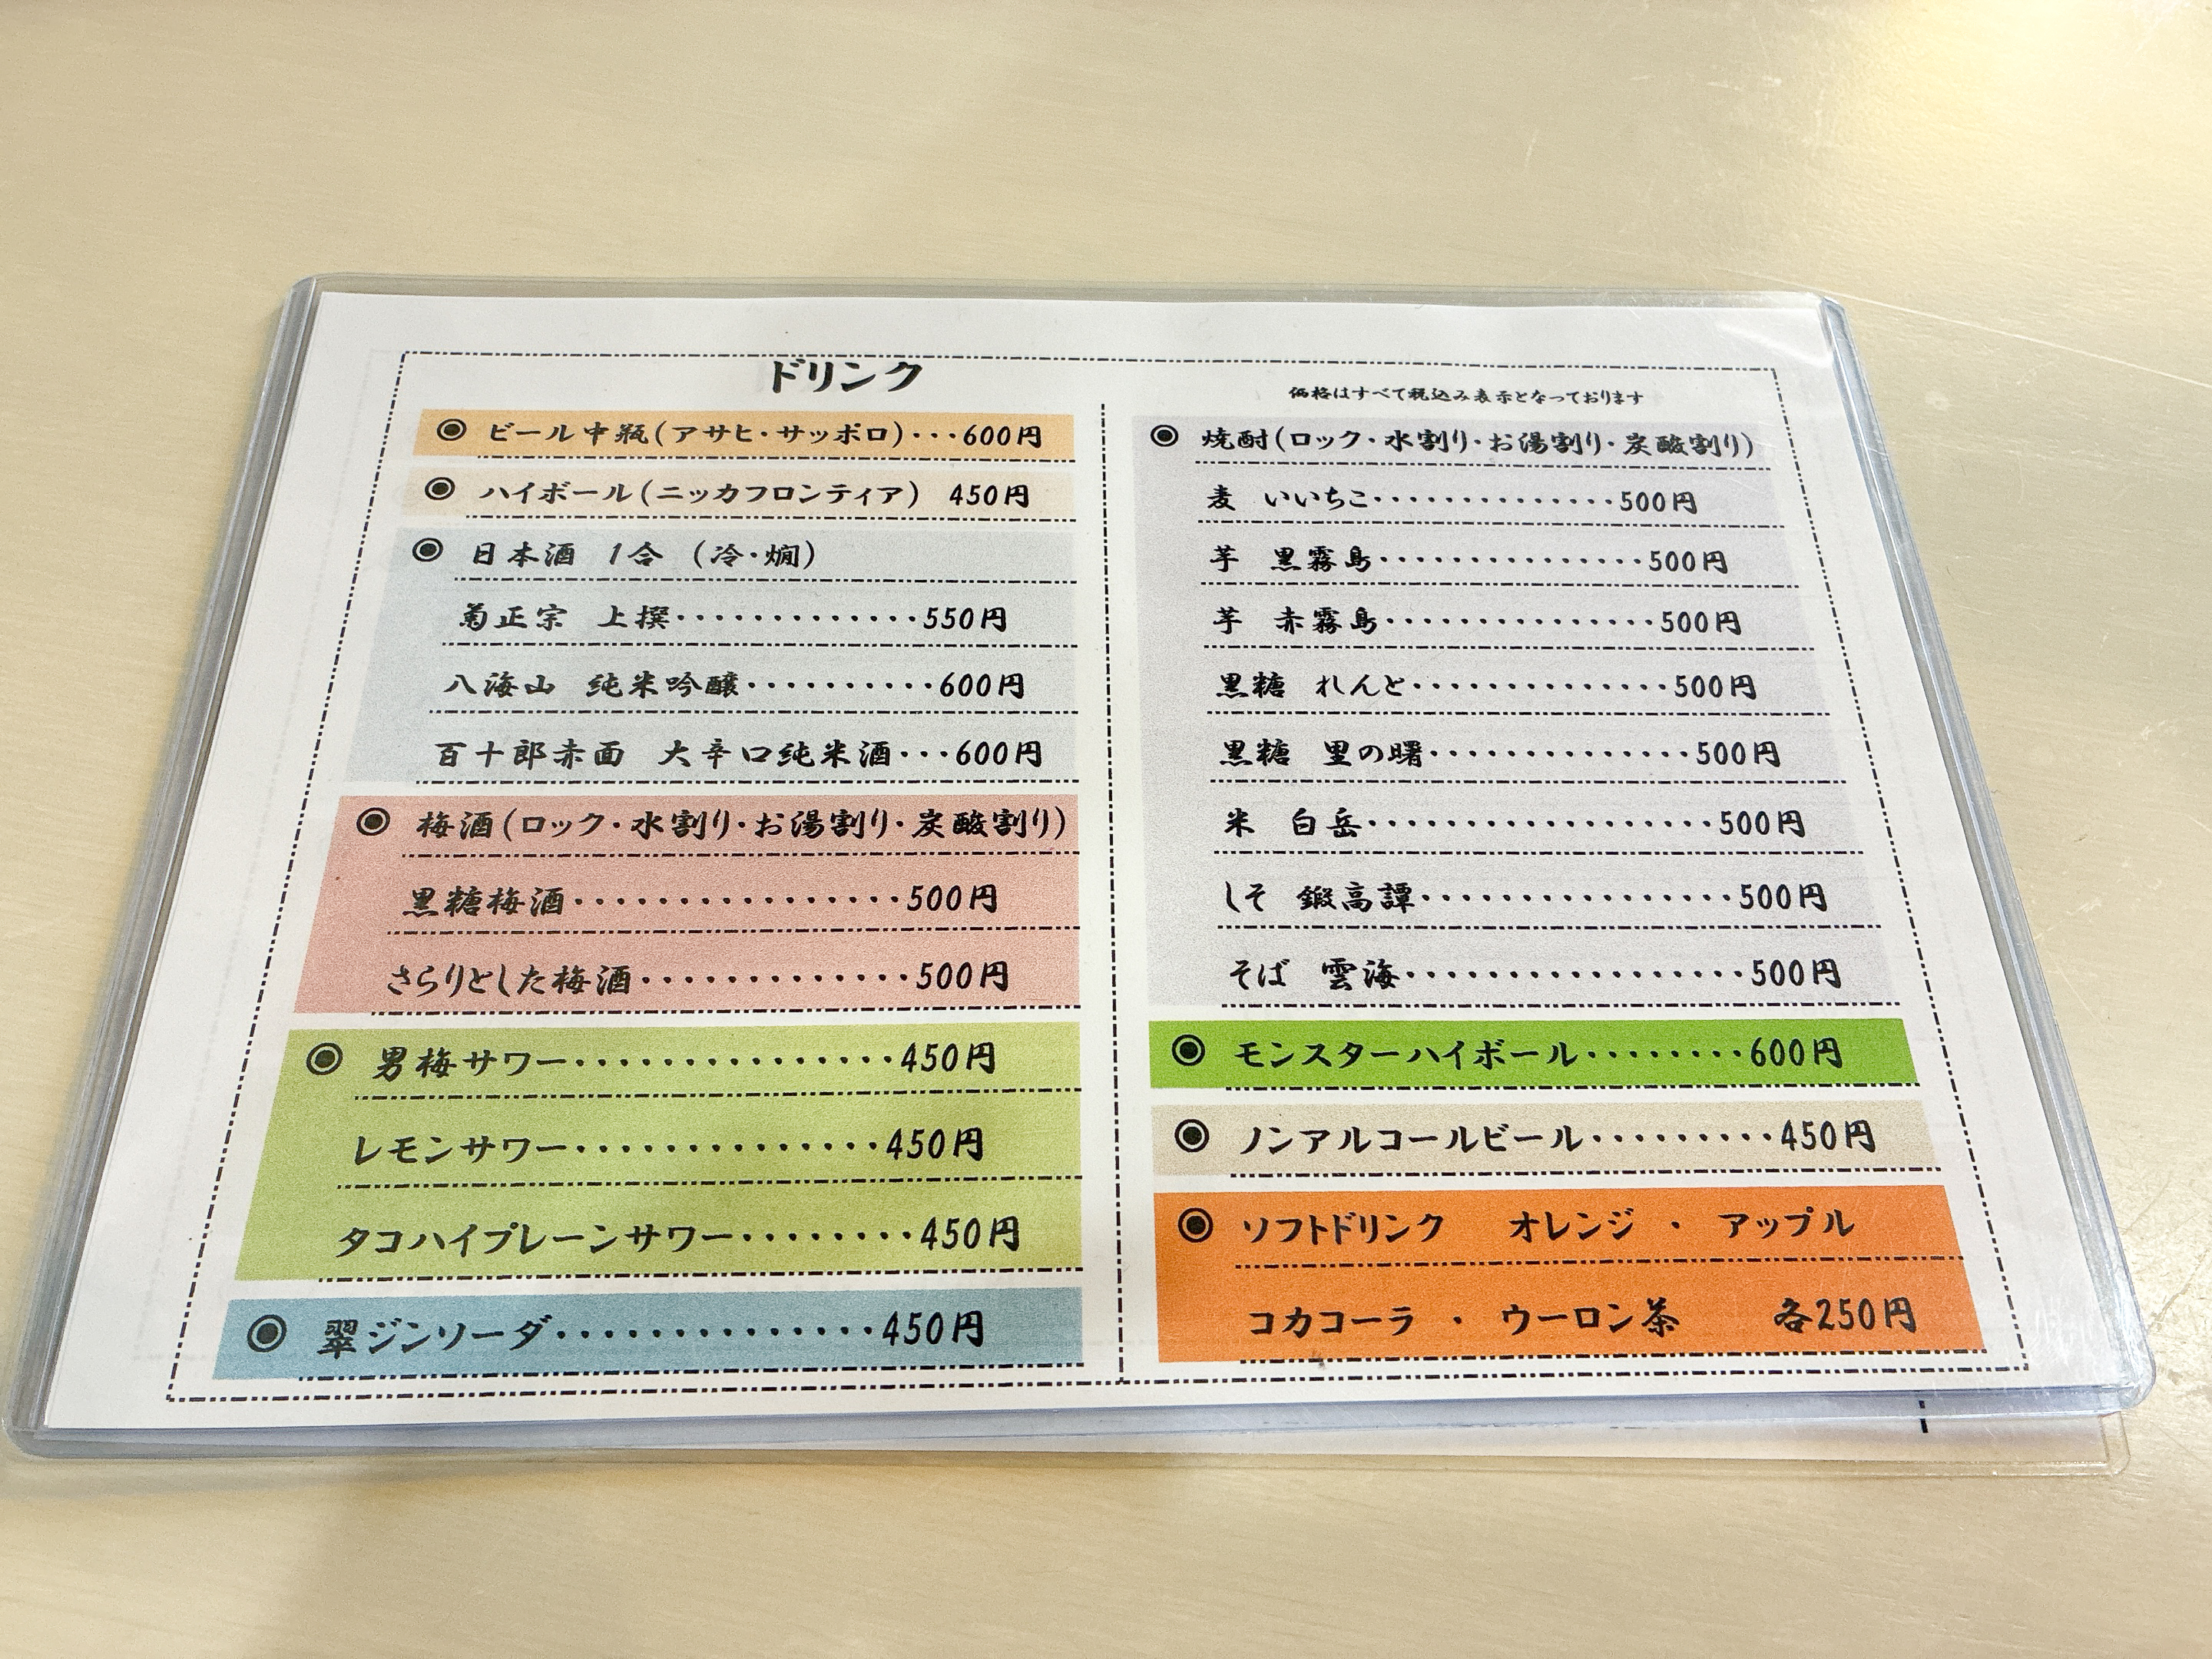 ドリンク
◉ ビール中瓶(アサヒ・サッポロ)···600円
◉ ハイボール(ニッカフロンティア) 450円
◉ 日本酒 1合 (冷・燗)
菊正宗 上撰·············550円
八海山 純米吟醸··········600円
百十郎赤面 大辛口純米酒···600円
◉ 梅酒(ロック・水割り・お湯割り・炭酸割り)
黒糖梅酒················500円
さらりとした梅酒·············500円
◉ 男梅サワー···············450円
レモンサワー··············450円
タコハイプレーンサワー········450円
◉ 翠ジンソーダ··············450円
価格はすべて税込み表示となっております
◉ 焼酎(ロック・水割り・お湯割り・炭酸割り)
麦 いいちこ··············500円
芋 黒霧島···············500円
芋 赤霧島···············500円
黒糖 れんと··············500円
黒糖 里の曙··············500円
米 白岳··················500円
しそ 鍛高譚················500円
そば 雲海·················500円
◉ モンスターハイボール········600円
◉ ノンアルコールビール·········450円
◉ ソフトドリンク オレンジ ・ アップル
コカコーラ ・ ウーロン茶 各250円